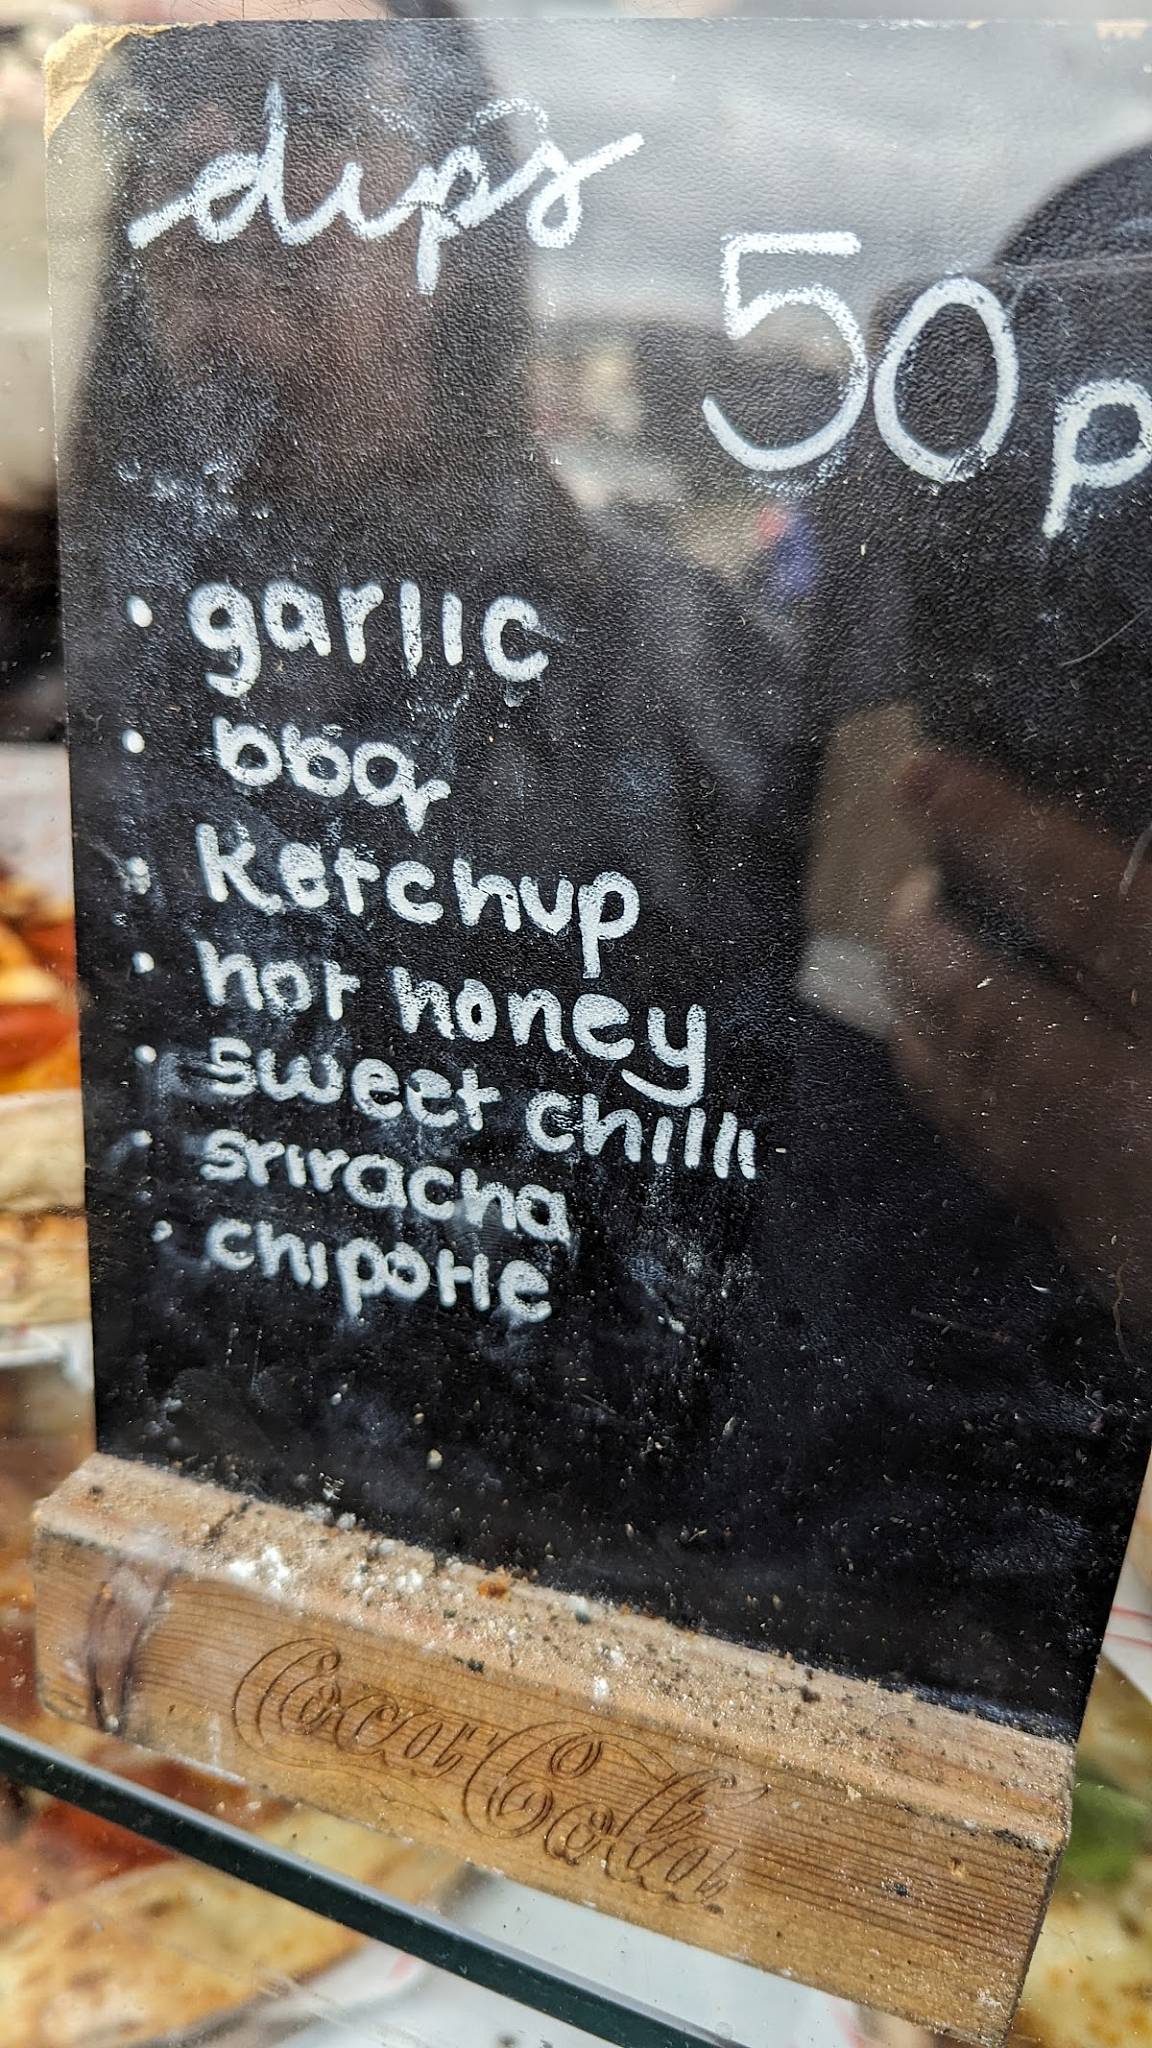 dips
50p
• garlic
• bbq
• Ketchup
• hot honey
• sweet chilli
• sriracha
• chipotle
Coca-Cola